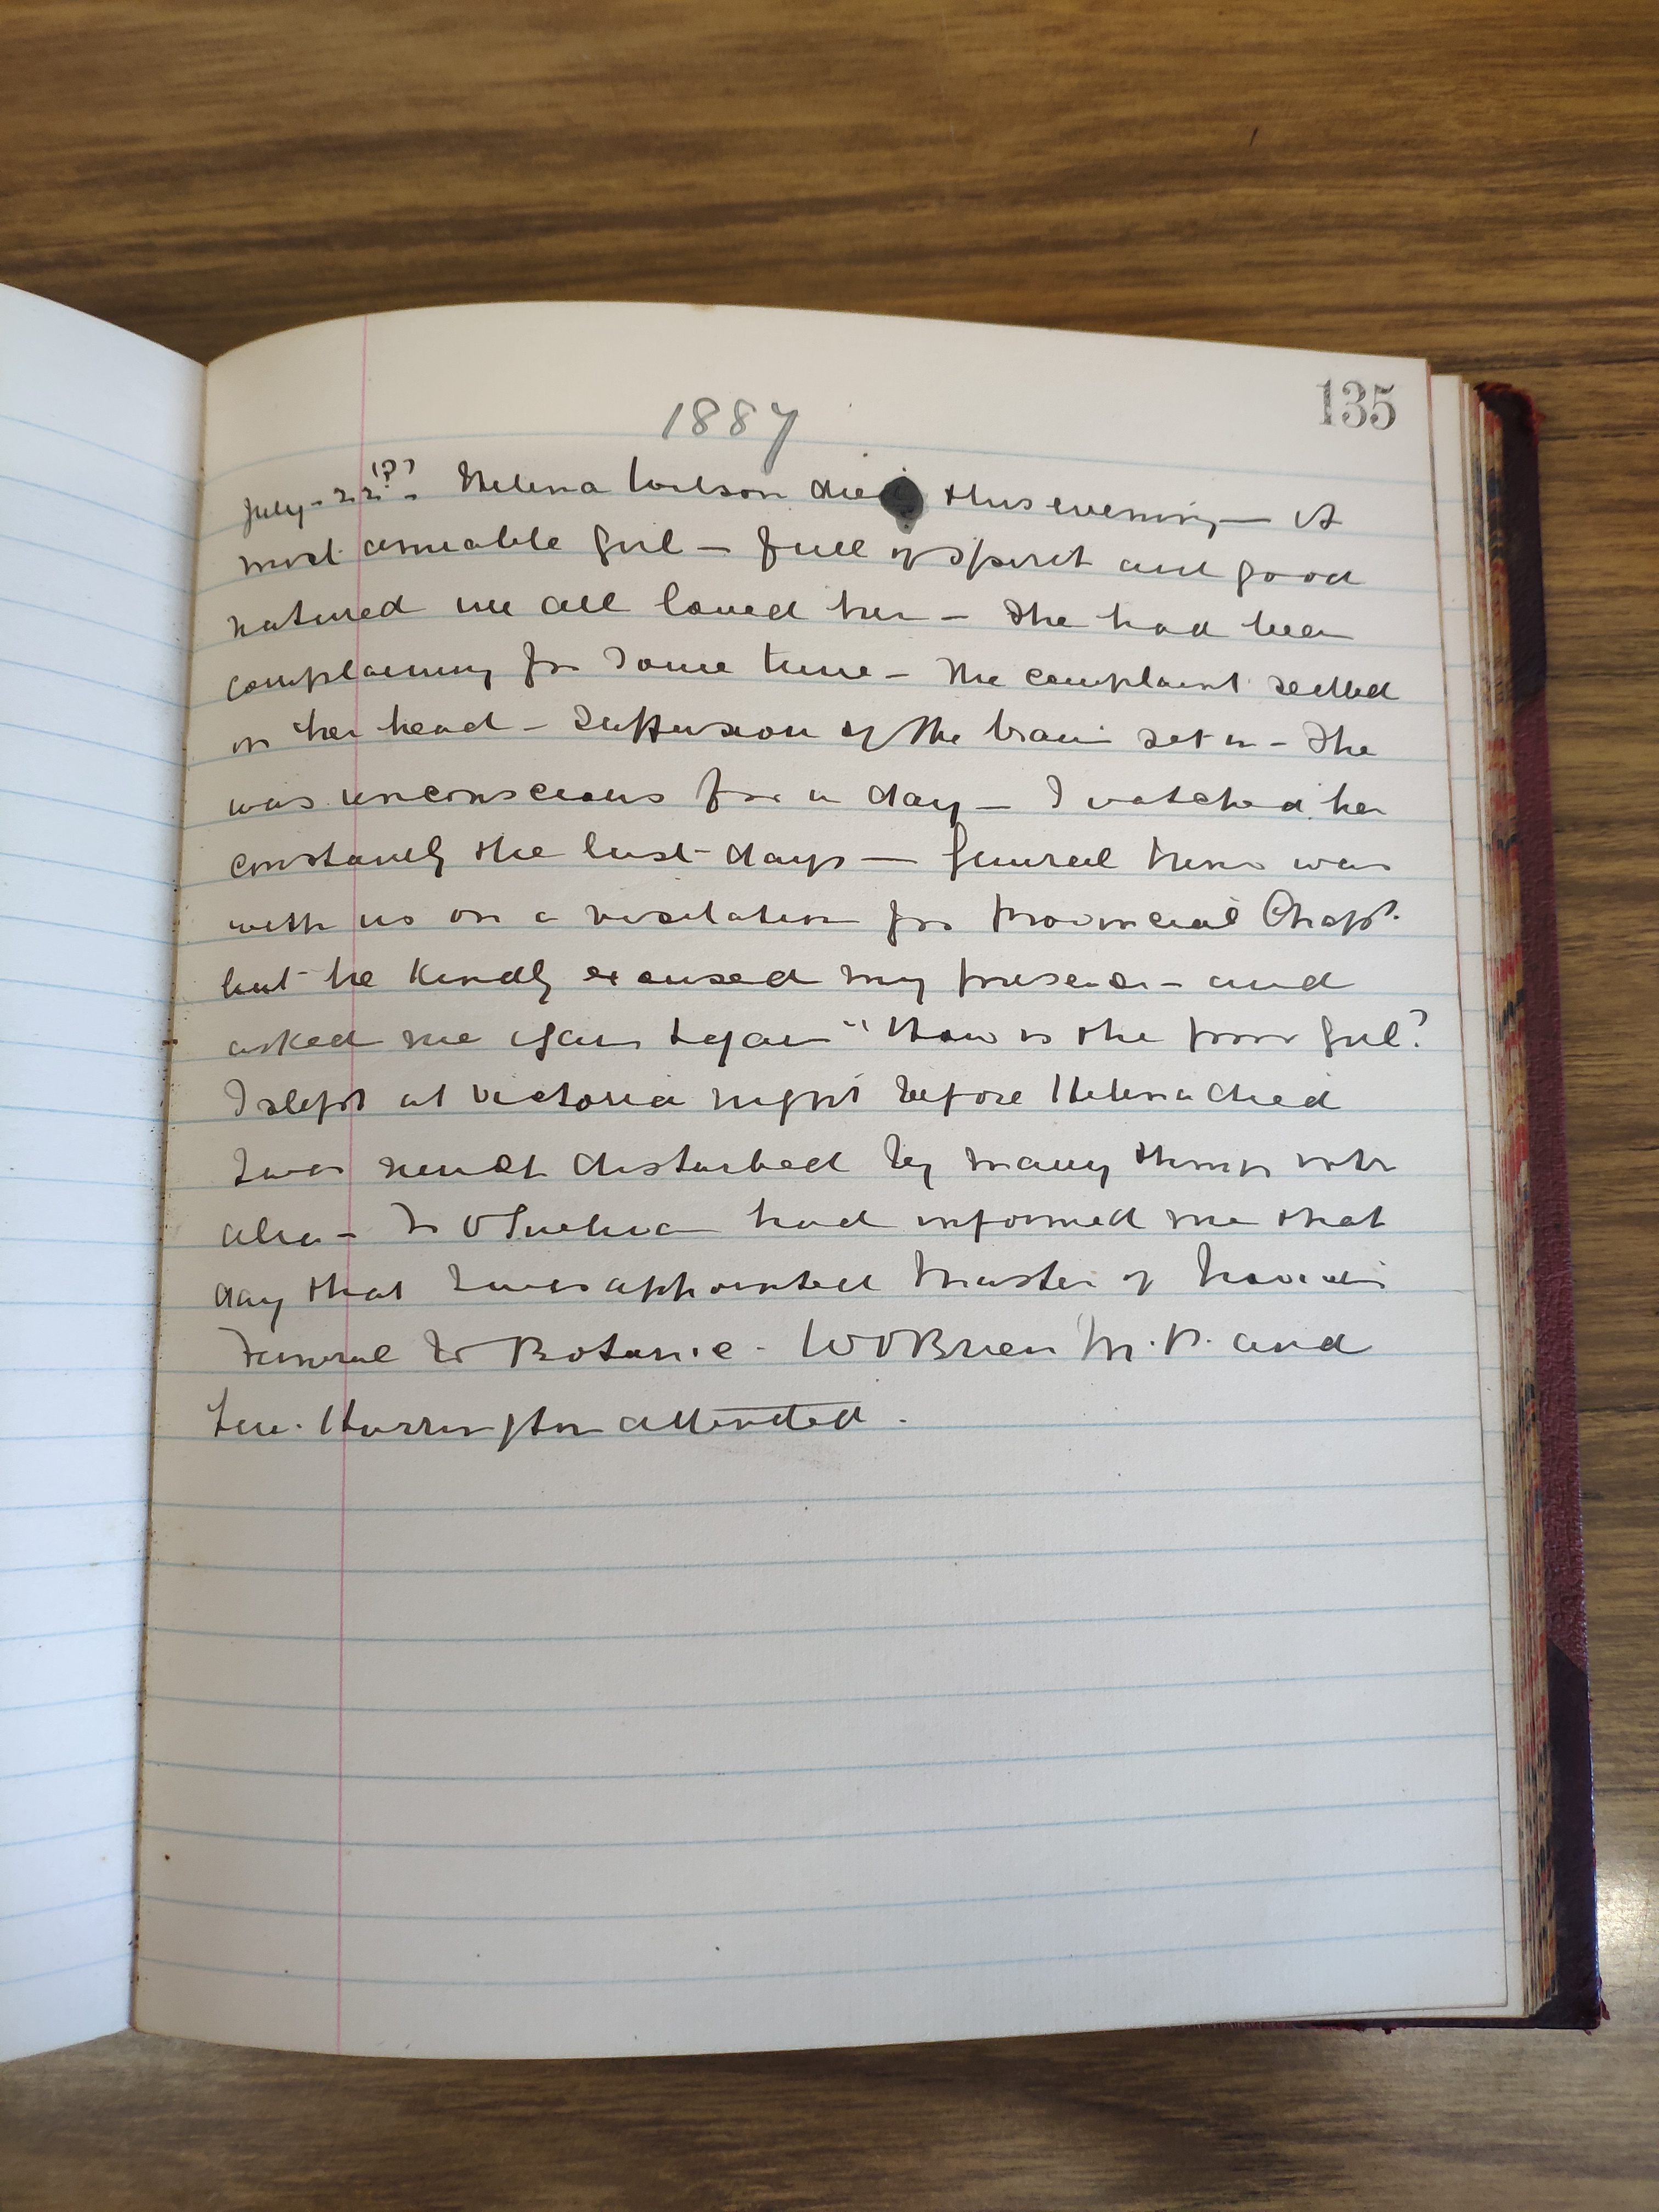 135
1887
July - 22(?) - Helena Wilson died this evening — A
most amiable girl — full of spirit and good
natured we all loved her — She had been
complaining for some time — The complaint settled
on her head — Suffusion of the brain set in — She
was unconscious for a day — I watched her
constantly the last days — General was
with us on a visitation for Provincial Chapt.
but he kindly excused my presence — and
asked me again & again "How is the poor girl?
I slept at Victoria night before Helena died
I was much disturbed by many things
also — had informed me that
day that I was appointed Master of Novices
Funeral to Botanic - W O'Brien M.P. and
Harrington attended.